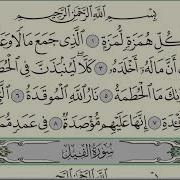 بِسْمِ اللَّهِ الرَّحْمَٰنِ الرَّحِيمِ
كُلِّ هُمَزَةٍ لُّمَزَةٍ ١ الَّذِي جَمَعَ مَالًا وَعَ
أَنَّ مَالَهُ أَخْلَدَهُ ٣ كَلَّا لَيُنۢبَذَنَّ فِي الْحُطَ
كَ مَا الْحُطَمَةُ ٥ نَارُ اللَّهِ الْمُوقَدَةُ ٦
ـِٔدَةِ ٧ إِنَّهَا عَلَيْهِم مُّؤْصَدَةٌ ٨ فِي عَمَدٍ مُّمَ
سُورَةُ الْفِيلِ